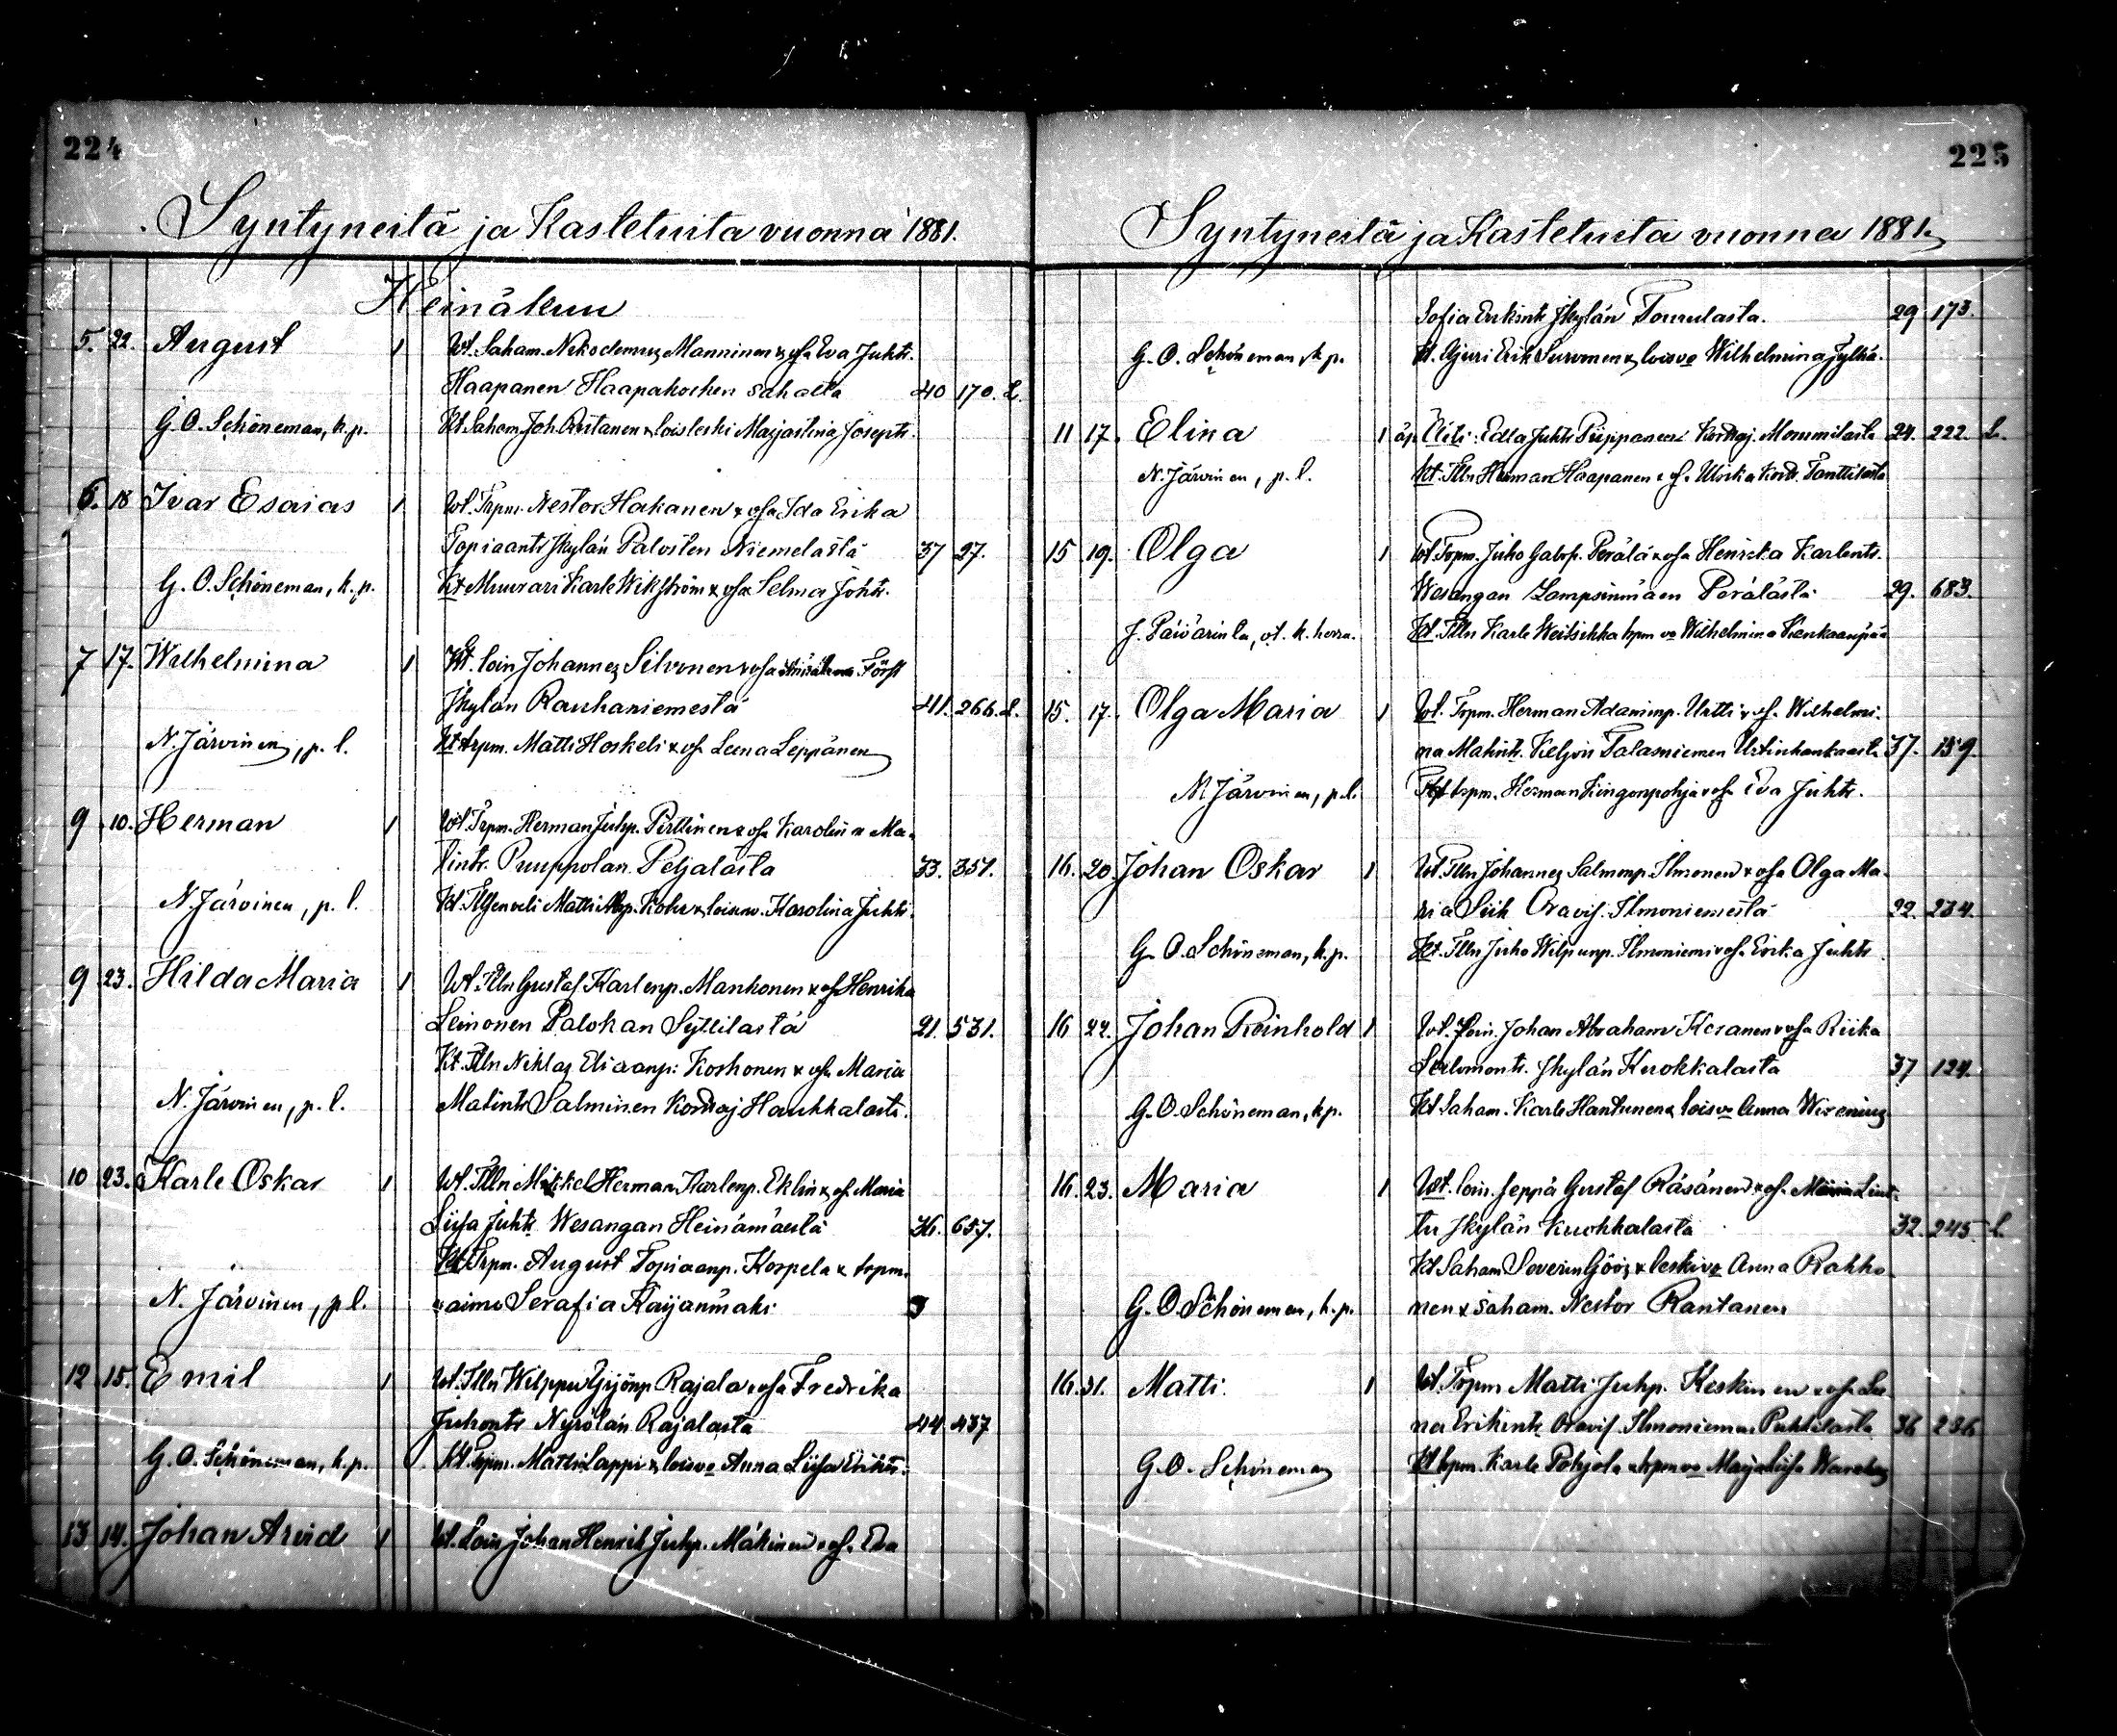 224
Syntyneitä ja Kastetuita vuonna 1881.
Heinäkuu
5. 22. August 1 Wt. Saham. Nikodemus Manninen & vsa Eva Juhts.
Haapanen Haapakosken sahalta 40 170. L.
G. O. Schöneman, k.p. Kt. Saham. Joh. Rutanen & loisleski Maijastina Josepts.
6. 18 Ivar Esaias 1 Wt. Trpm. Nestor Hakanen & vsa Ida Erika
Topiaantr Jkylän Palosten Niemelästä 37 27.
G. O. Schöneman, k.p. Kt. Muurari Karle Wikström & vsa Selma Johts.
7 17. Wilhelmina 1 Wt. loin Johannes Silvonen & vsa Först
Jkylän Rauhaniemestä 41. 266. L.
N. Järvinen, p. l. Kt. trpm. Matti Hoskeli & vsa Leena Leppänen
9 10. Herman 1 Wt. Trpm. Herman Juhp. Pirttinen & vsa Karolina Ma-
tintr. Puuppolan Peljalasta 33. 351.
N. Järvinen, p. l. Kt. Tlljen veli Matti Kohi & loisnv. Karolina Juhts.
9 23. Hilda Maria 1 Wt. Tlln Gustaf Karlenp. Manhonen & vsa Henrika
Leinonen Palokan Syttilästä 21. 531.
Kt. Tlln Niklas Eliaanp. Korhonen & vsa Maria
N. Järvinen, p. l. Matints Salminen Korthaj Haukkalasta.
10 23. Karle Oskar 1 Wt. Tlln Mikkel Herman Karlenp. Eklin & vsa Maria
Liisa Juhts Wesangan Heinämäestä 36. 657.
Kt. Trpm. August Topiaanp. Korpela & trpm.
N. Järvinen, p. l. vaimo Serafia Kaijanmäki
12 15. Emil 1 Wt. Tlln Wilppu Yrjönp. Rajala & vsa Fredrika
Juhonts Nyrölän Rajalasta 44 437
G. O. Schöneman, k.p. Kt. Trpm. Matti Lappi & loisvo Anna Liisa Erikts.
13 14. Johan Arvid 1 Wt. Loin Johan Henrik Juhp. Mäkinen & vsa Eva
225
Syntyneitä ja Kastetuita vuonna 1881.
Sofia Erikints Jkylän Tourulasta. 29 173.
G. O. Schöneman, k.p. Kt. Yjuri Erik Survonen & loisvo Wilhelmina Jylhä.
11 17. Elina 1 äp. Äiti: Edla Juhts Piippanen Korthaj. Mommilasta 24. 222. L.
N. Järvinen, p. l. Kt. Tlln Herman Haapanen & vsa Ulrika Korth. Tanttilasta
15 19. Olga 1 Wt. Trpm. Juho Gabrp. Perälä & vsa Henrika Karlents.
Wesangan Lampsinmäen Perälästä 29. 683.
J. Päivärinta, vt. k. herra. Kt. Tlln Karle Weitsikka & trpm vo Wilhelmina Kankaanpää
15. 17. Olga Maria 1 Wt. Trpm. Herman Adaminp. Urtti & vsa Wilhelmi-
na Matints. Keljon Talasniemen Urtinkankaasta 37. 159.
N. Järvinen, p. l. Kt. trpm. Herman Kingonpohja & vsa Eva Juhts.
16. 20. Johan Oskar 1 Wt. Tlln Johannes Salmonp. Ilmonen & vsa Olga Ma-
ria Siik Oravis. Ilmoniemestä 22. 234.
G. O. Schöneman, k.p. Kt. Tlln Juho Wilpunp. Ilmoniemi & vsa Erika Juhts
16 22. Johan Reinhold 1 Wt. loin. Johan Abraham Kesanen & vsa Riika
Salomonts. Jkylän Kuokkalasta 37 124.
G. O. Schöneman, k.p. Kt. Saham. Karle Hantunen & loisvo Anna Wirenius
16. 23. Maria 1 Wt. loin. seppä Gustaf Räsänen & vsa Maria Lint-
tu Jkylän Kuokkalasta 32. 245. L.
Kt. Saham. Severin Göös & leskivo Anna Rahko-
G. O. Schöneman, k.p. nen & saham. Nestor Rantanen
16. 31. Matti. 1 Wt. Trpm Matti Juhp. Keskinen & vsa Lee-
na Erikints Oravis. Ilmoniemen Puhtilasta 36 236
G. O. Schöneman Kt. trpm. Karle Pohjola & trpm vo Maijaliisa